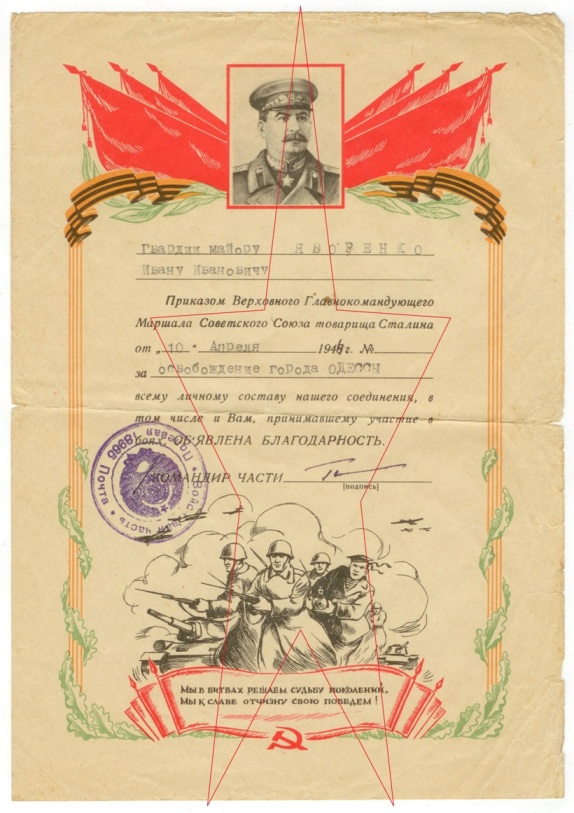 Гвардии майору ЯВОРЕНКО
Ивану Ивановичу
Приказом Верховного Главнокомандующего
Маршала Советского Союза товарища Сталина
от „10 “ Апреля 1944г. №
за освобождение города ОДЕССЫ
всему личному составу нашего соединения, в
том числе и Вам, принимавшему участие в
боях, ОБ'ЯВЛЕНА БЛАГОДАРНОСТЬ.
КОМАНДИР ЧАСТИ
(подпись)
Войсковая часть • Полевая Почта 18966
МЫ В БИТВАХ РЕШАЕМ СУДЬБУ ПОКОЛЕНИЙ,
МЫ К СЛАВЕ ОТЧИЗНУ СВОЮ ПОВЕДЕМ!